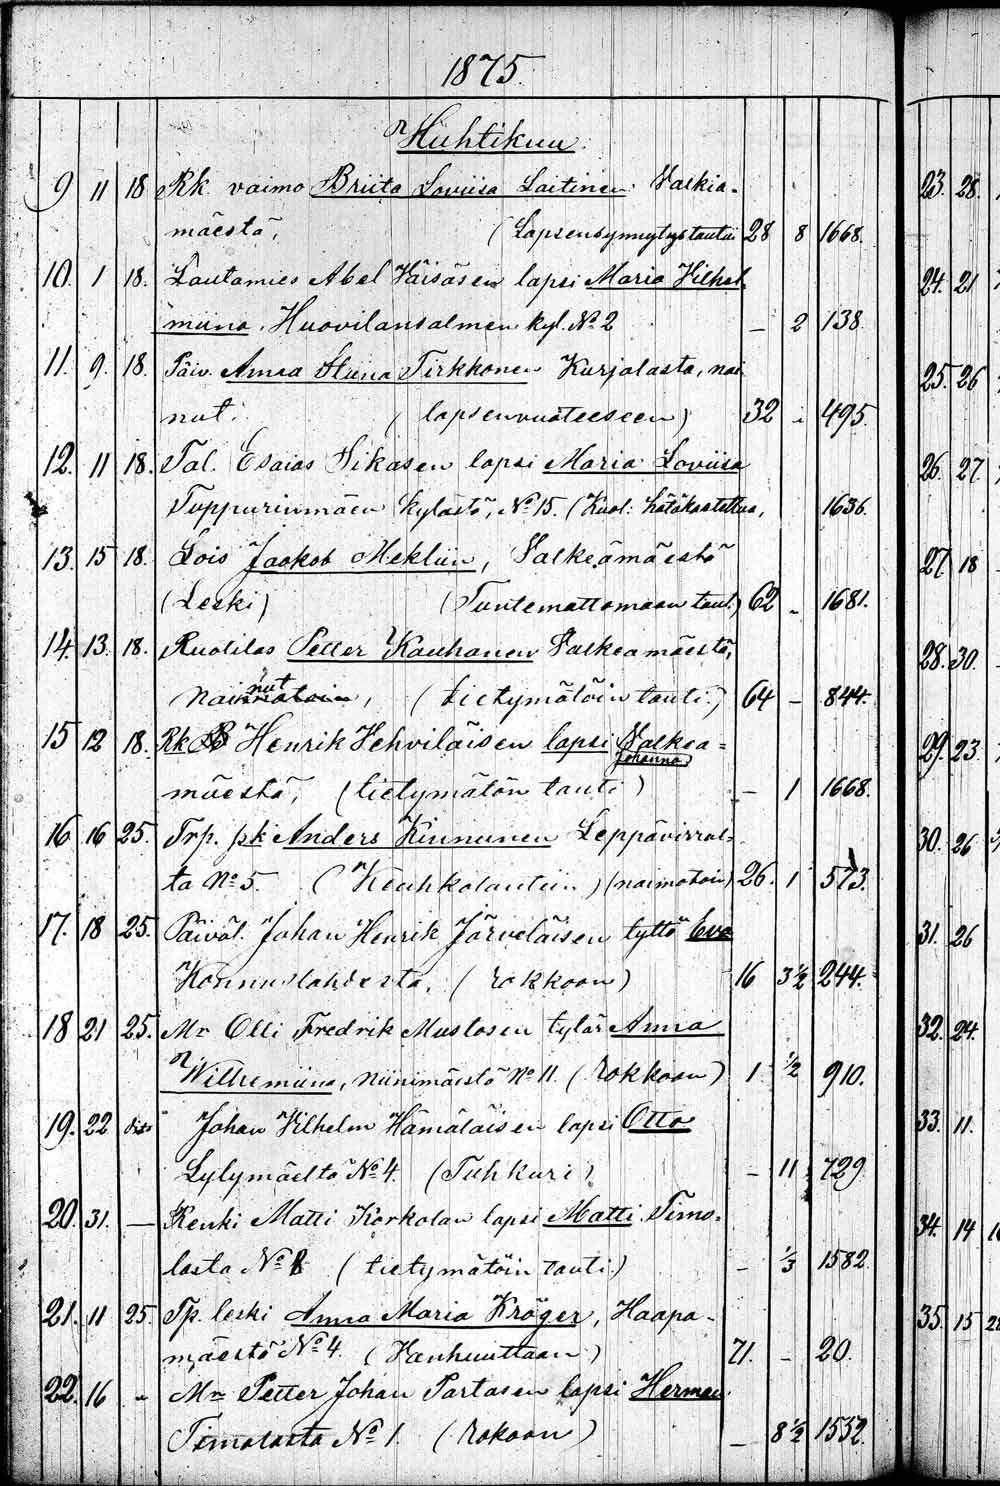 1875.
Huhtikuu
9 11 18 Rk. vaimo Briita Loviisa Laitinen Valkia-
mäestä, (Lapsensynnytystautiin 28 8 1668.
10. 1 18. Lautamies Abel Väisäsen lapsi Maria Vilhel
miina, Huovilansalmen kyl. No 2 — 2 138
11. 9. 18. Päiv. Anna Stiina Tirkkonen Kurjalasta, nai
nut. (lapsenvuoteeseen) 32 - 495.
12. 11 18. Tal. Esaias Sikasen lapsi Maria Loviisa
Tuppurinmäen kylästä, No 15. (Kuol: hätäkastettua, 1636.
13. 15 18. Lois Jaakob Mekliin, Valkeamäestä
(Leski) (Tuntemattomaan taut.) 62 - 1681.
14. 13. 18. Ruotilas Petter Kauhanen Valkeamäestä,
nainut, (tietymätöin tauti.) 64 - 844.
15 12 18. Rk Henrik Vehviläisen lapsi Valkea=
Johanna
mäestä, (tietymätön tauti) — 1 1668.
16 16 25. Trp. psk Anders Kinnunen Leppävirral=
ta No 5. (Keuhkotautiin) (naimatoin) 26. 1 573.
17. 18 25. Päiväl. Johan Henrik Järveläisen tyttö Eva
Konnuslahdesta, (rokkoon) 16 3½ 244.
18 21 25. Mr Olli Fredrik Mustosen tytär Anna
Wilhemiina, Niinimäestä No 11. (Rokkoon) 1 ½ 910.
19. 22 dito Johan Vilhelm Hämäläisen lapsi Otto
Lylymäeltä No 4. (Tuhkuri) — 11 729
20. 31. — Renki Matti Korkolan lapsi Matti. Timo-
lasta No 8 (tietymätöin tauti.) — ⅓ 1582.
21. 11 25. Tp. leski Anna Maria Kröger, Haapa-
mäestä No 4. (Vanhuuttaan) 71. - 20.
22. 16 " Mr Petter Johan Partasen lapsi Herman
Timolasta No 1. (Rokoon) — 8½ 1552.
23. 28.
24. 21
25. 26
26. 27.
27 18
28. 30.
29. 23.
30. 26
31. 26
32. 24.
33. 11.
34. 14
35. 15